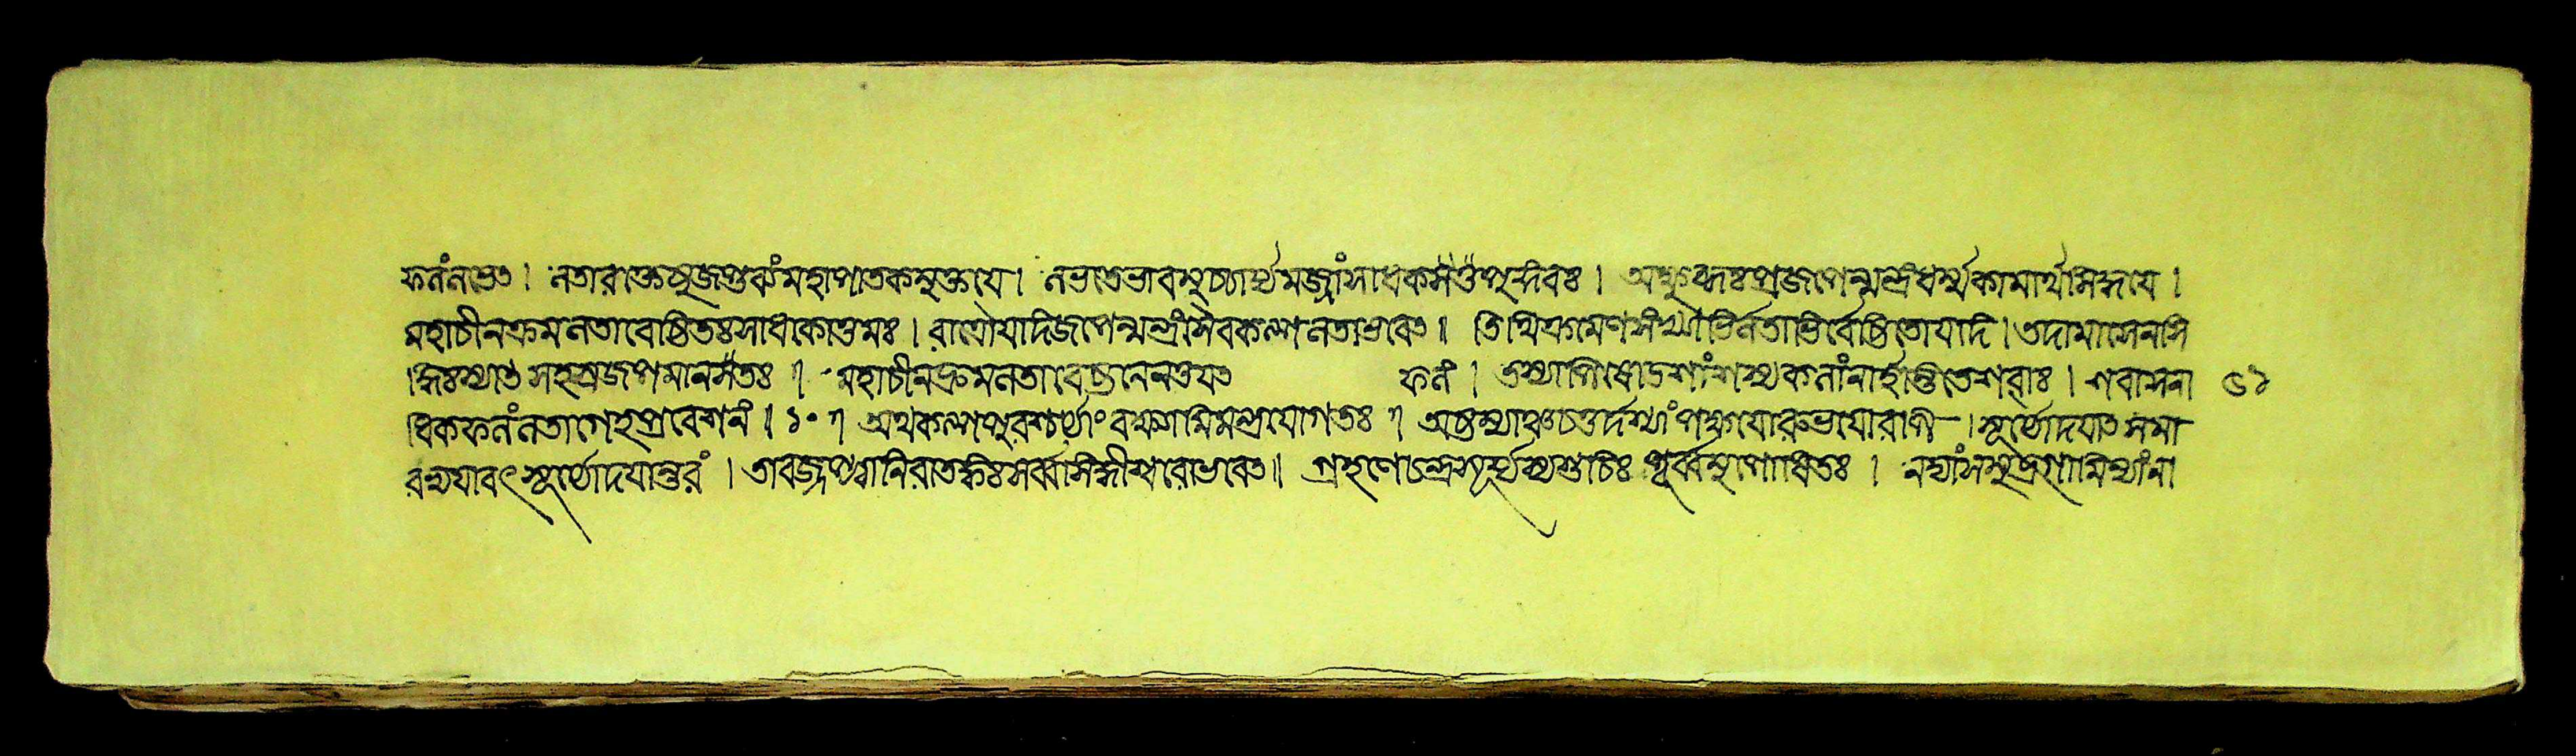 ফলংলভেৎ । লতারক্তেষুজপ্তব্যংমহাপাতকমুক্তয়ে । লভতেভাবমুচ্চার্য্যমজ্জাংসাধকসৈতৎপুর্দিবঃ । অক্ষুব্ধঃপ্রজপেন্মন্ত্রংধর্ম্মকামার্থসিদ্ধয়ে ।
মহাচীনক্রমলতাবেষ্টিতঃসাধকোত্তমঃ । রাত্রৌযদিজপেন্মন্ত্রংসৈবকল্পলতাভবেৎ ॥ তিথিক্রমেণসংখ্যাভির্লতাভির্বেষ্টিতোযদি । তদামাসেনসি
দ্ধিঃস্যাৎসহস্রজপমানসৈতঃ । মহাচীনক্রমলতাবেষ্টনেনতযৎ ফলং । তস্যাপিষোডশাংশস্যকলাংনার্হন্তিতেশবাঃ । শবাসনা ৫১
ধিকফলংলতাগেহপ্রবেশনং । ১০ । অথকল্পপুরশ্চর্য্যাংবক্ষ্যামিমন্ত্রযোগতঃ । অষ্টম্যাঞ্চচতুর্দশ্যাংপক্ষয়োরুভয়োরপি । সূর্য্যোদয়াৎসমা
রভ্যযাবৎসূর্য্যোদয়ান্তরং । তাবজ্জপ্ত্বানিরাতঙ্কঃসর্ব্বসিদ্ধীশ্বরোভবেৎ ॥ গ্রহণেচন্দ্রসূর্য্যস্যশুচিঃপূর্ব্বমুপোষিতঃ । নদ্যাংসমুদ্রগামিন্যাংনা